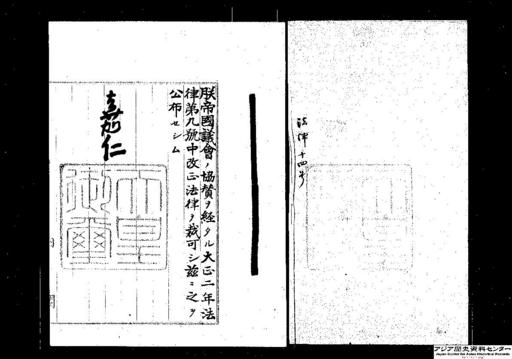 法律十四号
朕帝國議會ノ協賛ヲ経タル大正二年法
律第九號中改正法律ヲ裁可シ茲ニ之ヲ
公布セシム
嘉仁
天皇
御璽
内閣
アジア歴史資料センター
Japan Center for Asian Historical Records